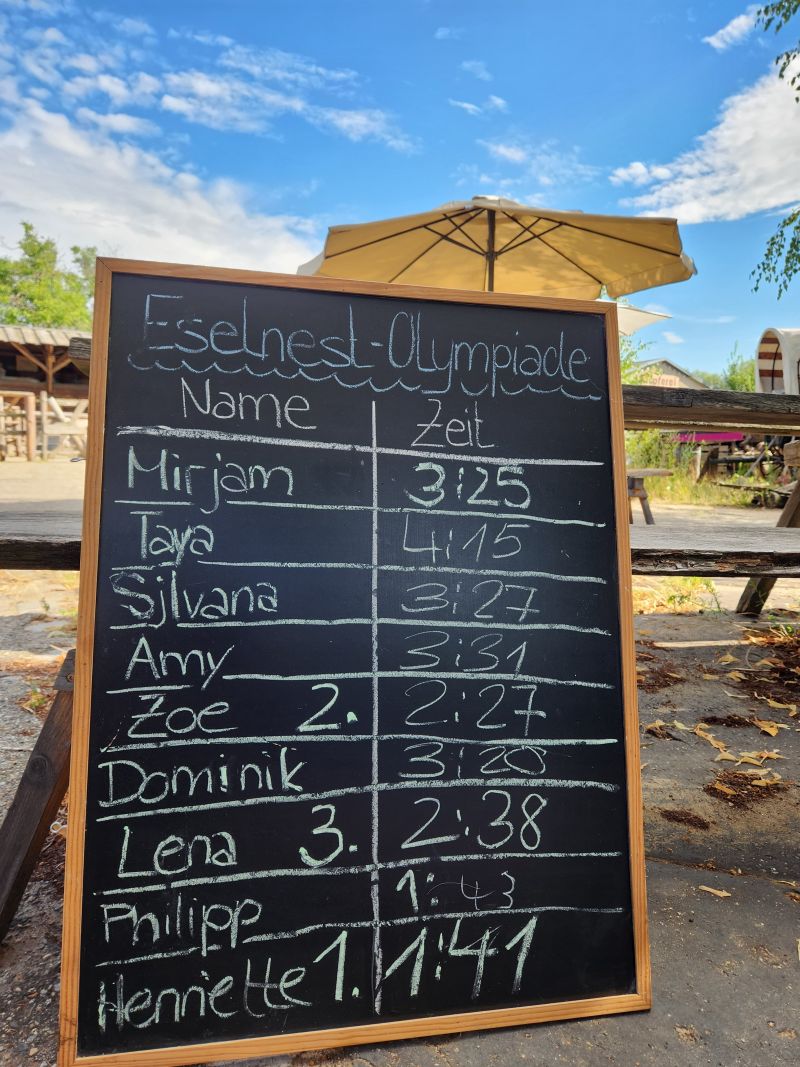 Eselnest-Olympiade
Name Zeit
Mirjam 3:25
Taya 4:15
Silvana 3:27
Amy 3:31
Zoe 2. 2:27
Dominik 3:20
Lena 3. 2:38
Philipp 1:43
Henriette 1. 1:41